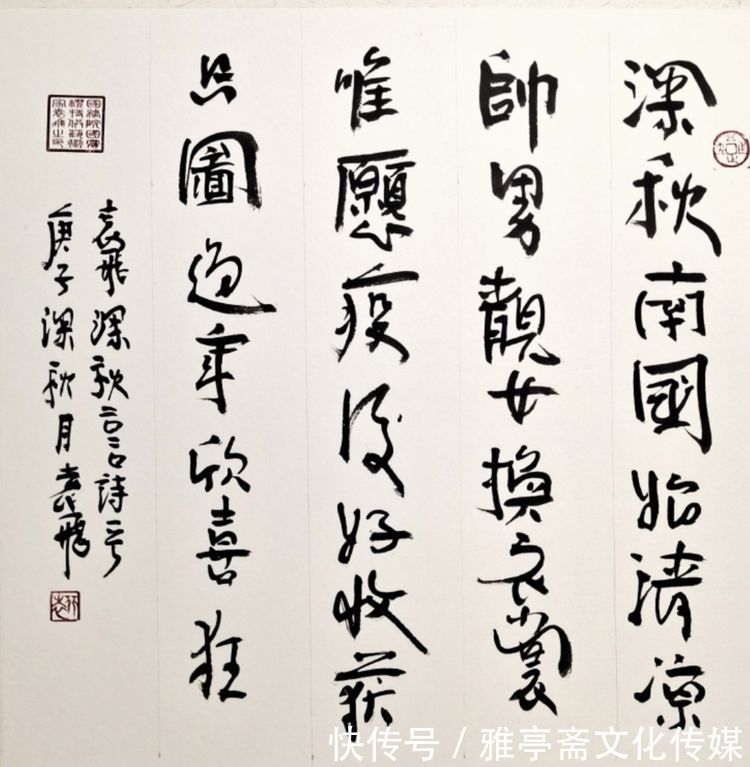 深秋南國始清凉
帥男靚女換衣裳
唯願疫後好收获
只圖过年欣喜狂
袁飛深秋言詩一首
庚子深秋月袁飛
快传号/雅亭斋文化传媒